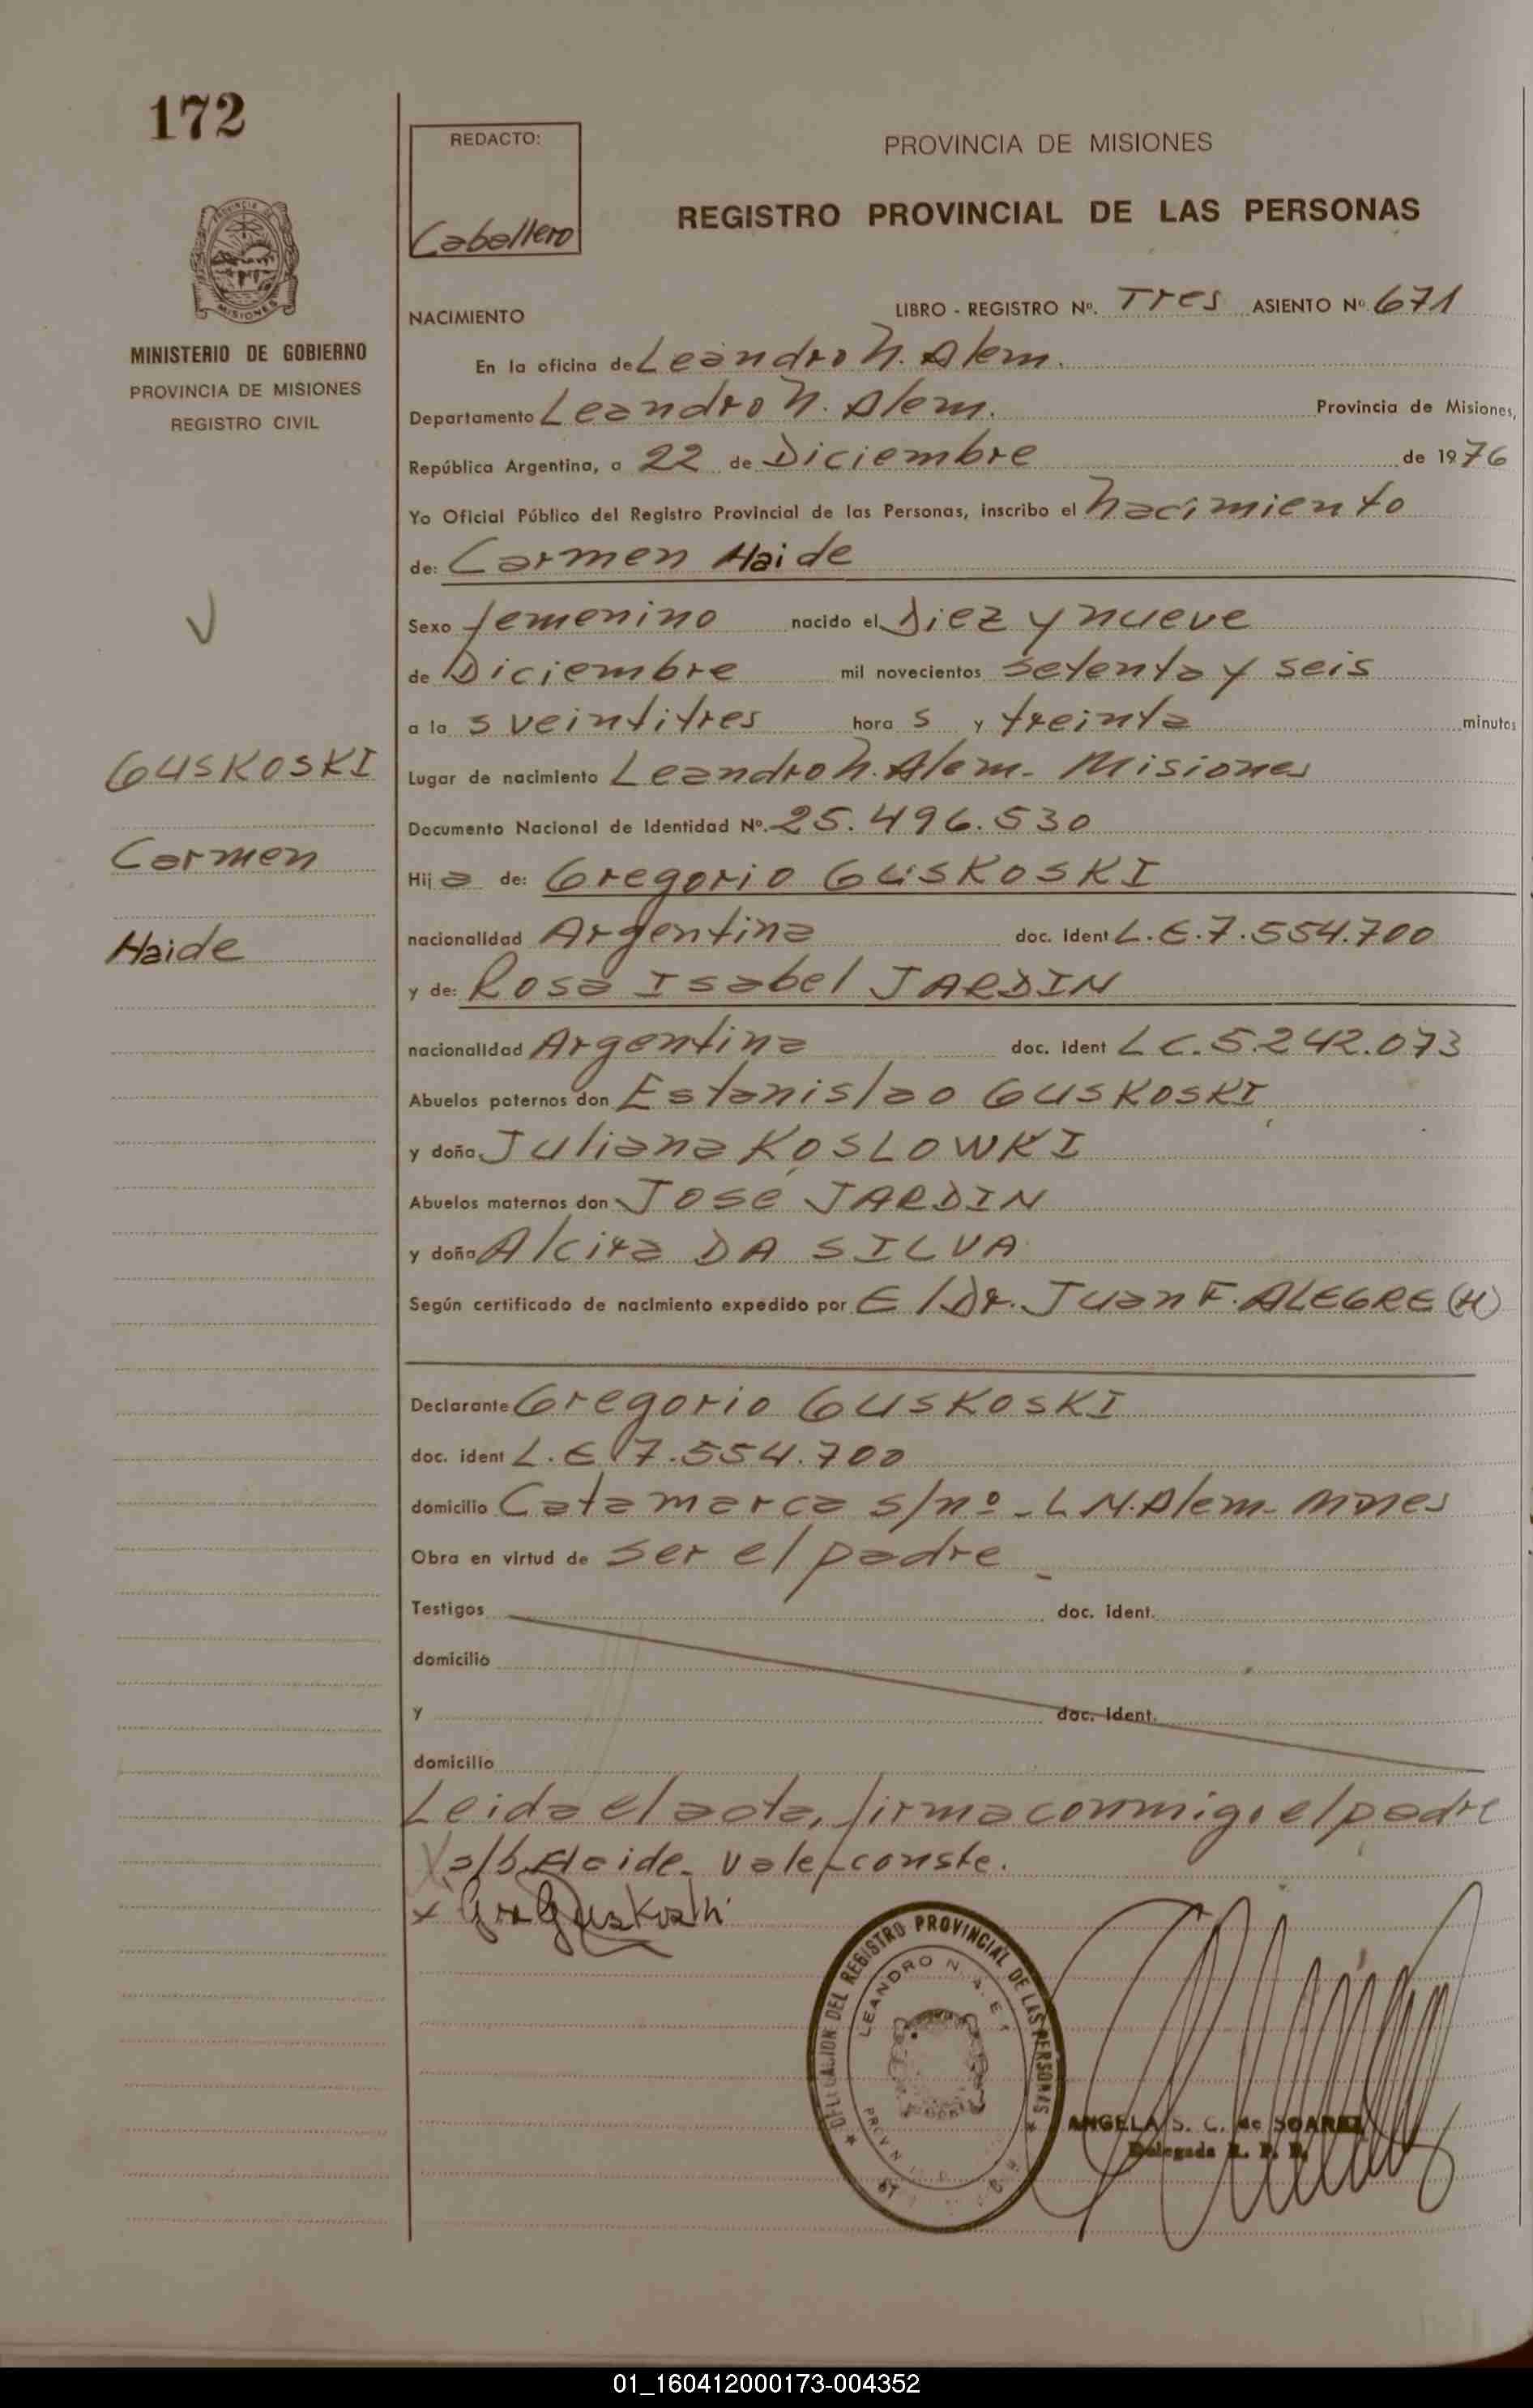 172
REDACTO:
Caballero
PROVINCIA DE MISIONES
REGISTRO PROVINCIAL DE LAS PERSONAS
MISIONES
MINISTERIO DE GOBIERNO
PROVINCIA DE MISIONES
REGISTRO CIVIL
NACIMIENTO LIBRO - REGISTRO Nº. Tres ASIENTO Nº 671
En la oficina de Leandro N. Alem.
Departamento Leandro N. Alem. Provincia de Misiones,
República Argentina, a 22 de Diciembre de 1976
Yo Oficial Público del Registro Provincial de las Personas, inscribo el Nacimiento
de: Carmen Haide
Sexo femenino nacido el Diez y nueve
de Diciembre mil novecientos setenta y seis
a la s veintitres hora s y treinta minutos
GUSKOSKI
Lugar de nacimiento Leandro N. Alem - Misiones
Documento Nacional de Identidad Nº. 25.496.530
Carmen
Hij a de: Gregorio GUSKOSKI
Haide
nacionalidad Argentina doc. Ident L.E.7.554.700
y de: Rosa Isabel JARDIN
nacionalidad Argentina doc. Ident L C. 5.242.073
Abuelos paternos don Estanislao GUSKOSKI
y doña Juliana KOSLOWKI
Abuelos maternos don José JARDIN
y doña Alcira DA SILVA
Según certificado de nacimiento expedido por El Dr. Juan F. ALEGRE (H)
Declarante Gregorio GUSKOSKI
doc. ident L.E 7.554.700
domicilio Catamarca s/nº - L N. Alem - Mnes
Obra en virtud de ser el padre
Testigos doc. ident.
domicilio
y doc. ident.
domicilio
Leida el acta, firma conmigo el padre
s/b Haide. Vale conste.
x Greg Guskoski
DELEGACION DEL REGISTRO PROVINCIAL DE LAS PERSONAS
LEANDRO N. ALEM
ANGELA S. C. de SOAREZ
Delegada R. P. P.
01_160412000173-004352